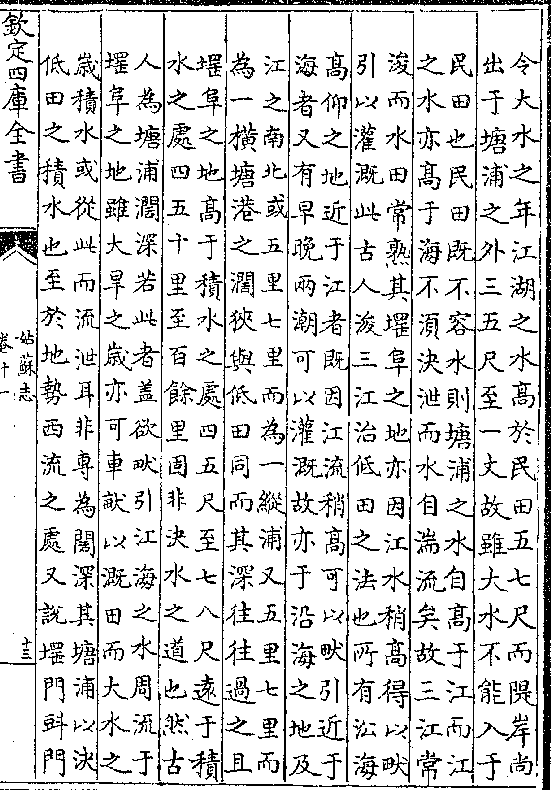 令大水之年江湖之水高於民田五七尺而隄岸尚
出于塘浦之外三五尺至一丈故雖大水不能入于
民田也民田既不容水則塘浦之水自高于江而江
之水亦高于海不湏決泄而水自湍流矣故三江常
浚而水田常熟其堽阜之地亦因江水稍高得以畎
引以灌溉此古人浚三江治低田之法也所有㳂海
高仰之地近于江者既因江流稍高可以畎引近于
海者又有早晚兩潮可以灌溉故亦于沿海之地及
江之南北或五里七里而為一縱浦又五里七里而
為一横塘港之濶狹與低田同而其深往往過之且
堽阜之地高于積水之處四五尺至七八尺逺于積
水之處四五十里至百餘里固非決水之道也然古
人為塘浦濶深若此者盖欲畎引江海之水周流于
堽阜之地雖大旱之歳亦可車畎以溉田而大水之
歳積水或從此而流泄耳非專為闊深其塘浦以決
低田之積水也至於地勢西流之處又說堽門斗門
欽定四庫全書
姑蘇志
卷十一
十三